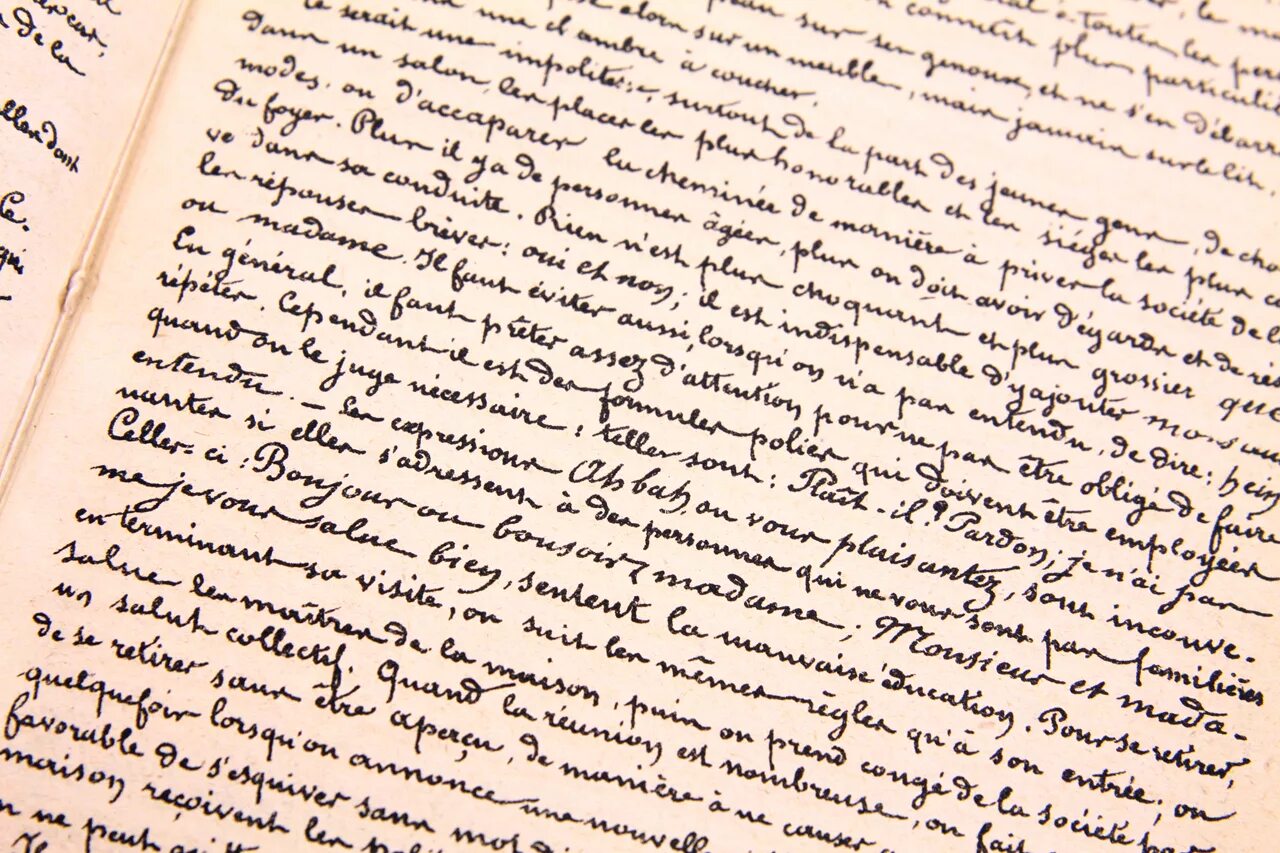 de la
allendant
Ce-
qui
le me
à toutes les per
connaît plus particuli
peau sur ses genoux, et ne s'en débarra
alors sur un meuble, mais jamais sur le lit,
une chambre à coucher.
Ce serait une impolitesse, surtout de la part des jeunes gens, de cho
dans un salon les places les plus honorables et les sièges les plus c
modes, ou d'accaparer la cheminée de manière à priver la société de l
du foyer. Plus il y a de personnes âgées, plus on doit avoir d'égards et de rés
ve dans sa conduite. Rien n'est plus choquant et plus grossier que
les réponses brèves: oui et non; il est indispensable d'y ajouter monsieur
ou madame. Il faut éviter aussi, lorsqu'on n'a pas entendu, de dire: hein
En général, il faut prêter assez d'attention pour ne pas être obligé de faire
répéter. Cependant il est des formules polies qui doivent être employées
quand on le juge nécessaire: telles sont: Plaît-il? Pardon; je n'ai pas
entendu. — Les expressions Ah bah ou vous plaisantez, sont inconve-
nantes si elles s'adressent à des personnes qui ne vous sont pas familières
Celles-ci: Bonjour ou bonsoir, madame; Monsieur et mada-
me je vous salue bien, sentent la mauvaise éducation. Pour se retirer,
en terminant sa visite, on suit les mêmes règles qu'à son entrée; on
salue les maîtres de la maison, puis on prend congé de la société par
un salut collectif. Quand la réunion est nombreuse, on fait
de se retirer sans être aperçu, de manière à ne causer
quelquefois lorsqu'on annonce une nouvelle
favorable de s'esquiver sans mot di
maison reçoivent les poli
ne peut
Il